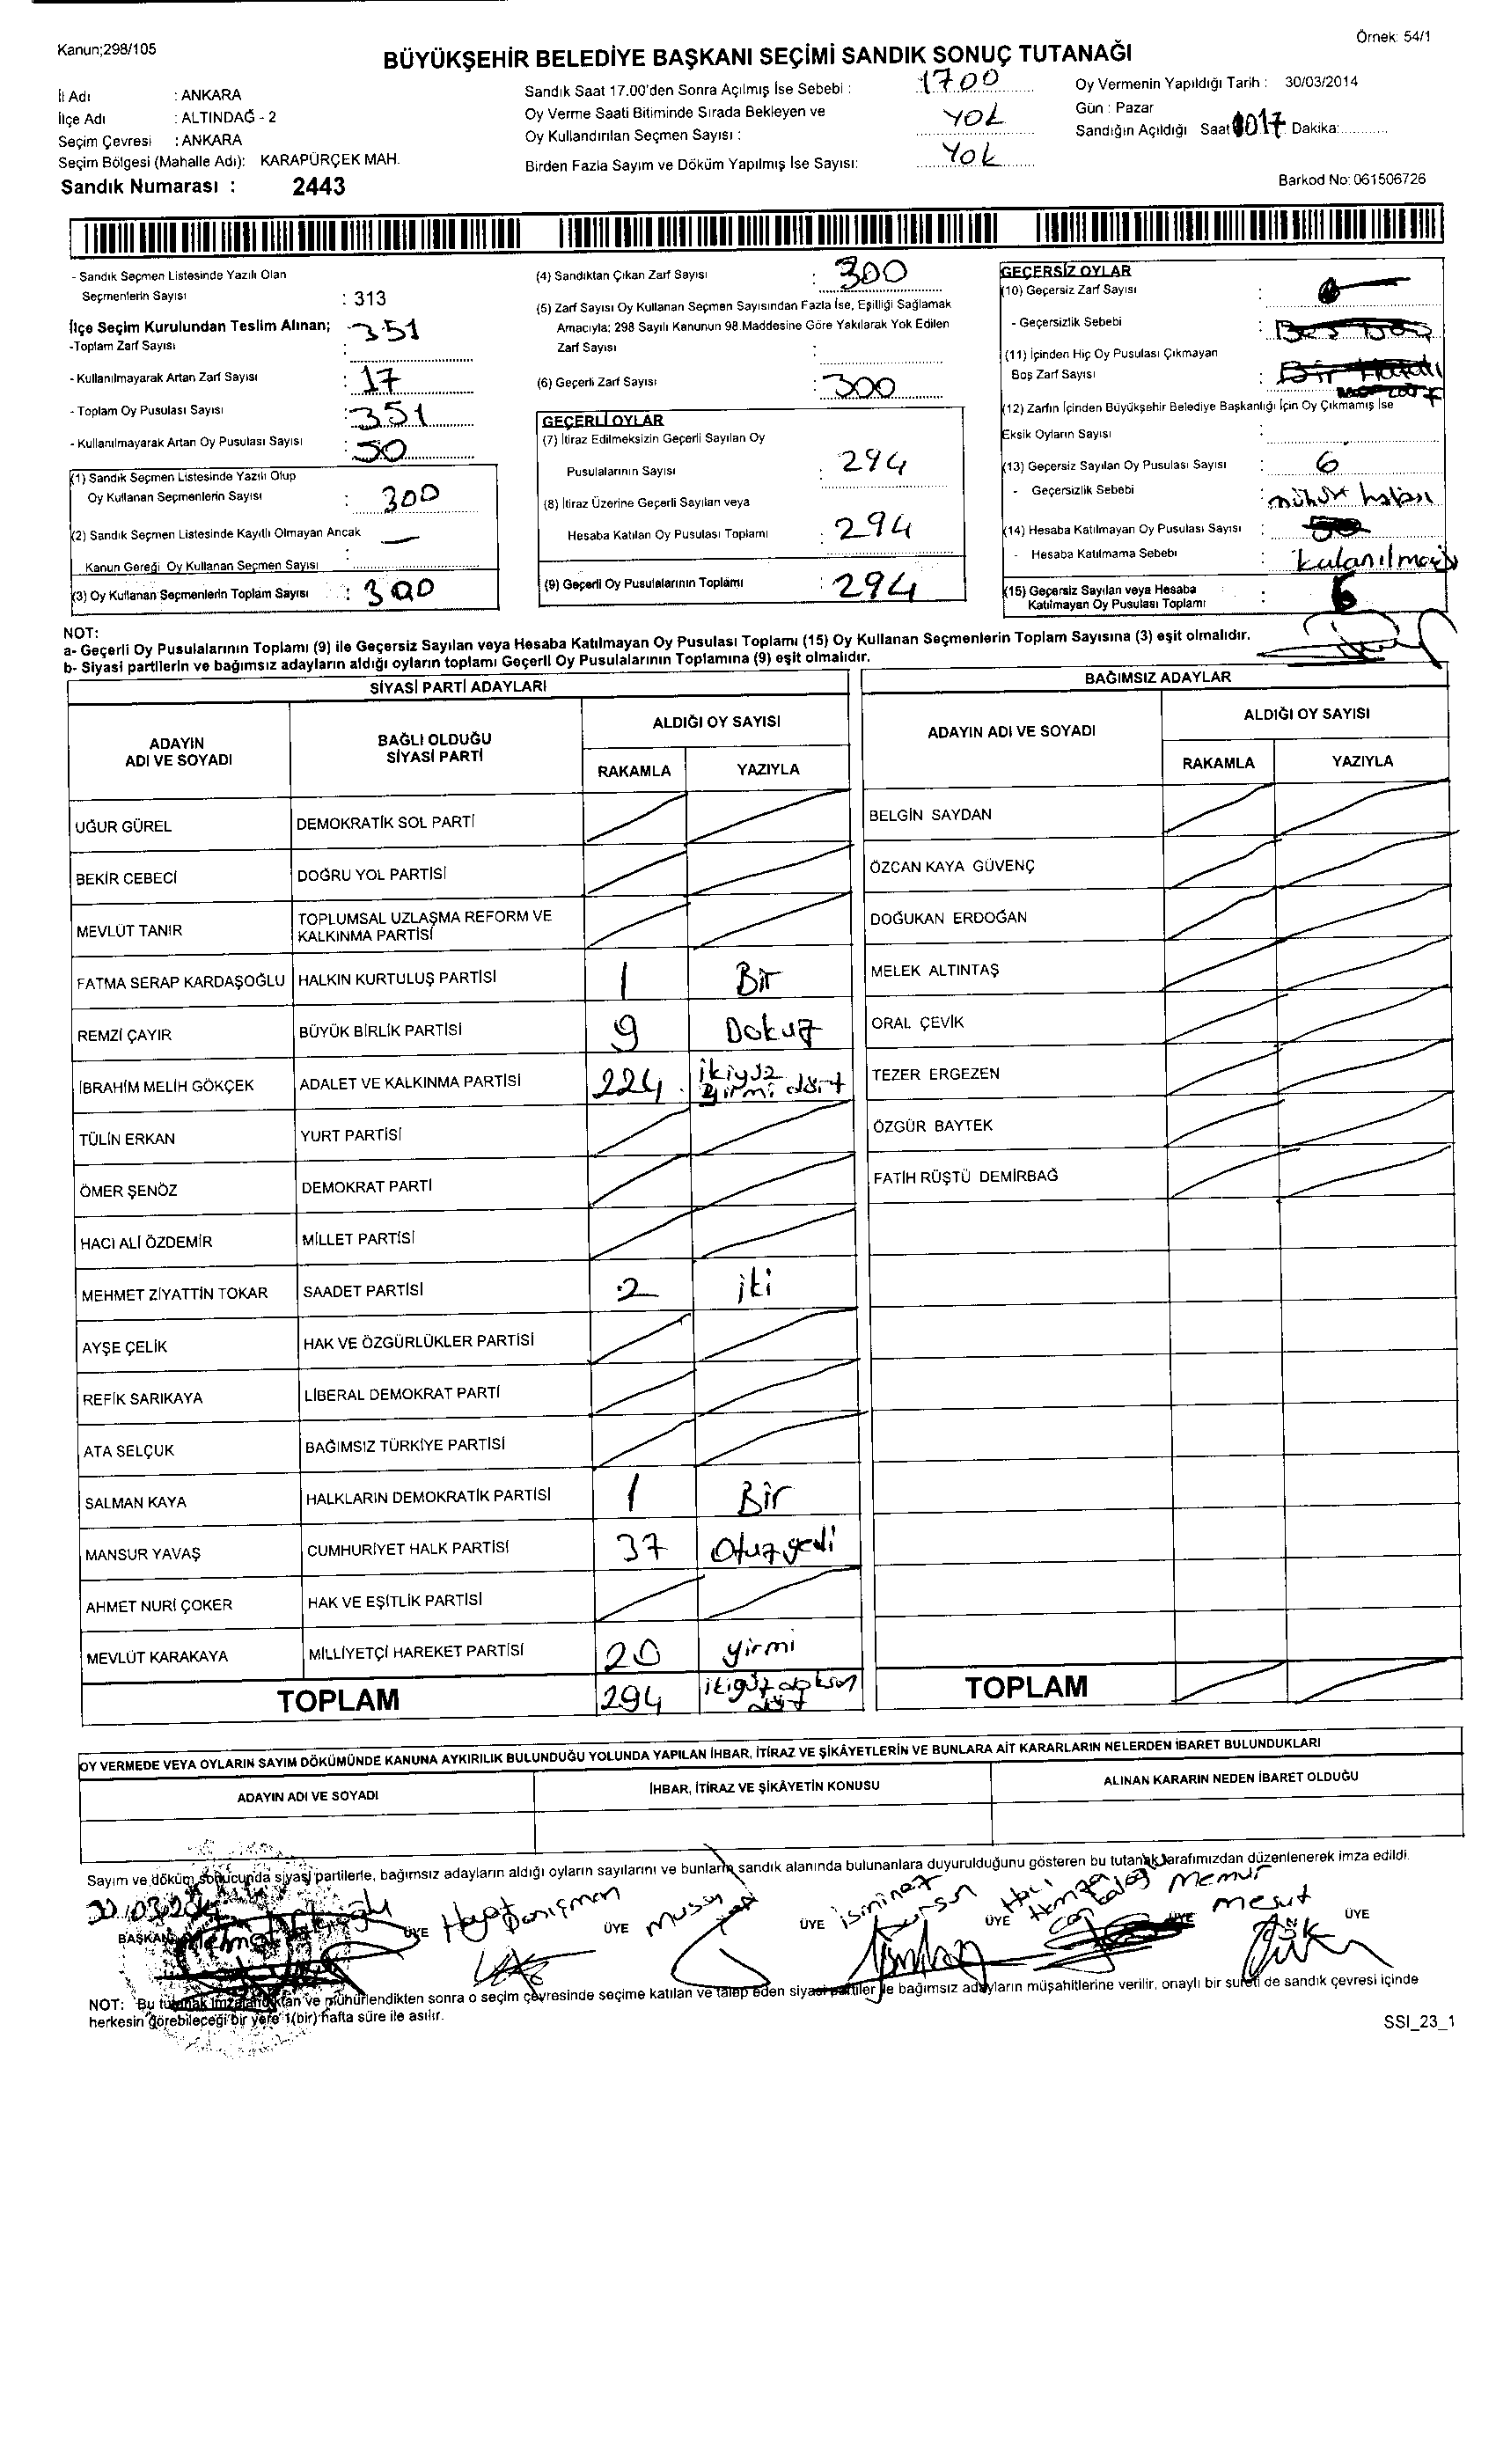 Kanun;298/105
Örnek: 54/1
BÜYÜKŞEHİR BELEDİYE BAŞKANI SEÇİMİ SANDIK SONUÇ TUTANAĞI
İl Adı : ANKARA
İlçe Adı : ALTINDAĞ - 2
Seçim Çevresi : ANKARA
Seçim Bölgesi (Mahalle Adı): KARAPÜRÇEK MAH.
Sandık Numarası : 2443
Sandık Saat 17.00'den Sonra Açılmış İse Sebebi : 1700
Oy Verme Saati Bitiminde Sırada Bekleyen ve
Oy Kullandırılan Seçmen Sayısı : YOK
Birden Fazla Sayım ve Döküm Yapılmış İse Sayısı: YOK
Oy Vermenin Yapıldığı Tarih : 30/03/2014
Gün : Pazar
Sandığın Açıldığı Saat 17 Dakika:
Barkod No: 061506726
- Sandık Seçmen Listesinde Yazılı Olan
Seçmenlerin Sayısı : 313
İlçe Seçim Kurulundan Teslim Alınan;
-Toplam Zarf Sayısı : 351
- Kullanılmayarak Artan Zarf Sayısı : 17
- Toplam Oy Pusulası Sayısı : 351
- Kullanılmayarak Artan Oy Pusulası Sayısı : 50
(1) Sandık Seçmen Listesinde Yazılı Olup
Oy Kullanan Seçmenlerin Sayısı : 300
(2) Sandık Seçmen Listesinde Kayıtlı Olmayan Ancak
Kanun Gereği Oy Kullanan Seçmen Sayısı : —
(3) Oy Kullanan Seçmenlerin Toplam Sayısı : 300
(4) Sandıktan Çıkan Zarf Sayısı : 300
(5) Zarf Sayısı Oy Kullanan Seçmen Sayısından Fazla İse, Eşitliği Sağlamak
Amacıyla; 298 Sayılı Kanunun 98.Maddesine Göre Yakılarak Yok Edilen
Zarf Sayısı :
(6) Geçerli Zarf Sayısı : 300
GEÇERLİ OYLAR
(7) İtiraz Edilmeksizin Geçerli Sayılan Oy
Pusulalarının Sayısı : 294
(8) İtiraz Üzerine Geçerli Sayılan veya
Hesaba Katılan Oy Pusulası Toplamı : 294
(9) Geçerli Oy Pusulalarının Toplamı : 294
GEÇERSİZ OYLAR
(10) Geçersiz Zarf Sayısı :
- Geçersizlik Sebebi :
(11) İçinden Hiç Oy Pusulası Çıkmayan
Boş Zarf Sayısı :
(12) Zarfın İçinden Büyükşehir Belediye Başkanlığı İçin Oy Çıkmamış İse
Eksik Oyların Sayısı :
(13) Geçersiz Sayılan Oy Pusulası Sayısı : 6
- Geçersizlik Sebebi : mühür hatası
(14) Hesaba Katılmayan Oy Pusulası Sayısı :
- Hesaba Katılmama Sebebi :
(15) Geçersiz Sayılan veya Hesaba
Katılmayan Oy Pusulası Toplamı : 6
NOT:
a- Geçerli Oy Pusulalarının Toplamı (9) ile Geçersiz Sayılan veya Hesaba Katılmayan Oy Pusulası Toplamı (15) Oy Kullanan Seçmenlerin Toplam Sayısına (3) eşit olmalıdır.
b- Siyasi partilerin ve bağımsız adayların aldığı oyların toplamı Geçerli Oy Pusulalarının Toplamına (9) eşit olmalıdır.
SİYASİ PARTİ ADAYLARI
ADAYIN ADI VE SOYADI BAĞLI OLDUĞU SİYASİ PARTİ ALDIĞI OY SAYISI
RAKAMLA YAZIYLA
UĞUR GÜREL DEMOKRATİK SOL PARTİ
BEKİR CEBECİ DOĞRU YOL PARTİSİ
MEVLÜT TANIR TOPLUMSAL UZLAŞMA REFORM VE KALKINMA PARTİSİ
FATMA SERAP KARDAŞOĞLU HALKIN KURTULUŞ PARTİSİ 1 Bir
REMZİ ÇAYIR BÜYÜK BİRLİK PARTİSİ 9 Dokuz
İBRAHİM MELİH GÖKÇEK ADALET VE KALKINMA PARTİSİ 224 ikiyüz yirmi dört
TÜLİN ERKAN YURT PARTİSİ
ÖMER ŞENÖZ DEMOKRAT PARTİ
HACI ALİ ÖZDEMİR MİLLET PARTİSİ
MEHMET ZİYATTİN TOKAR SAADET PARTİSİ 2 iki
AYŞE ÇELİK HAK VE ÖZGÜRLÜKLER PARTİSİ
REFİK SARIKAYA LİBERAL DEMOKRAT PARTİ
ATA SELÇUK BAĞIMSIZ TÜRKİYE PARTİSİ
SALMAN KAYA HALKLARIN DEMOKRATİK PARTİSİ 1 Bir
MANSUR YAVAŞ CUMHURİYET HALK PARTİSİ 37 Otuzyedi
AHMET NURİ ÇOKER HAK VE EŞİTLİK PARTİSİ
MEVLÜT KARAKAYA MİLLİYETÇİ HAREKET PARTİSİ 20 yirmi
TOPLAM 294 ikiyüz doksan dört
BAĞIMSIZ ADAYLAR
ADAYIN ADI VE SOYADI ALDIĞI OY SAYISI
RAKAMLA YAZIYLA
BELGİN SAYDAN
ÖZCAN KAYA GÜVENÇ
DOĞUKAN ERDOĞAN
MELEK ALTINTAŞ
ORAL ÇEVİK
TEZER ERGEZEN
ÖZGÜR BAYTEK
FATİH RÜŞTÜ DEMİRBAĞ
TOPLAM
OY VERMEDE VEYA OYLARIN SAYIM DÖKÜMÜNDE KANUNA AYKIRILIK BULUNDUĞU YOLUNDA YAPILAN İHBAR, İTİRAZ VE ŞİKÂYETLERİN VE BUNLARA AİT KARARLARIN NELERDEN İBARET BULUNDUKLARI
ADAYIN ADI VE SOYADI İHBAR, İTİRAZ VE ŞİKÂYETİN KONUSU ALINAN KARARIN NEDEN İBARET OLDUĞU
Sayım ve döküm sonucunda siyasi partilerle, bağımsız adayların aldığı oyların sayılarını ve bunların sandık alanında bulunanlara duyurulduğunu gösteren bu tutanak tarafımızdan düzenlenerek imza edildi.
BAŞKAN ÜYE Hayat Danışman ÜYE Musa ÜYE ÜYE Hacı Hamza ÜYE Memur Mesut ÜYE
NOT: Bu tutanak imzalandıktan ve mühürlendikten sonra o seçim çevresinde seçime katılan ve talep eden siyasi partiler ile bağımsız adayların müşahitlerine verilir, onaylı bir sureti de sandık çevresi içinde
herkesin görebileceği bir yere 1(bir) hafta süre ile asılır.
SSI_23_1